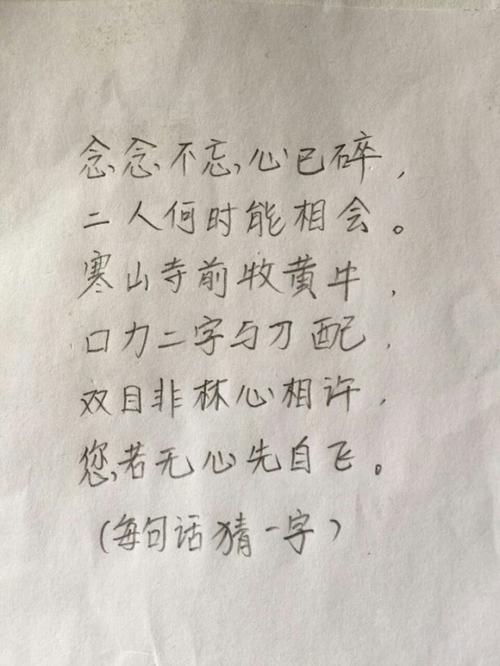 念念不忘心已碎，
二人何时能相会。
寒山寺前牧黄牛，
口力二字与刀配，
双目非林心相许，
您若无心先自飞。
（每句话猜一字）